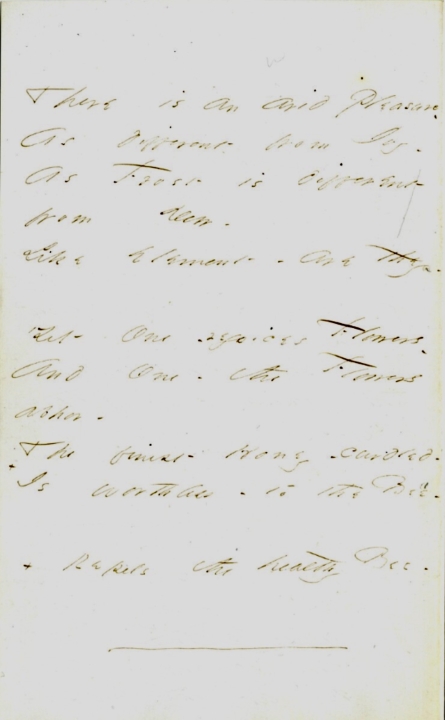 There is an arid Pleasure
As different from Joy -
As Frost is different
from Dew -
Like Element - are they -
Yet One rejoices Flowers
And One - the Flowers
abhor -
The finest Honey - curdled -
+ Is worthless - to the Bee -
+ Repels the healthy Bee -